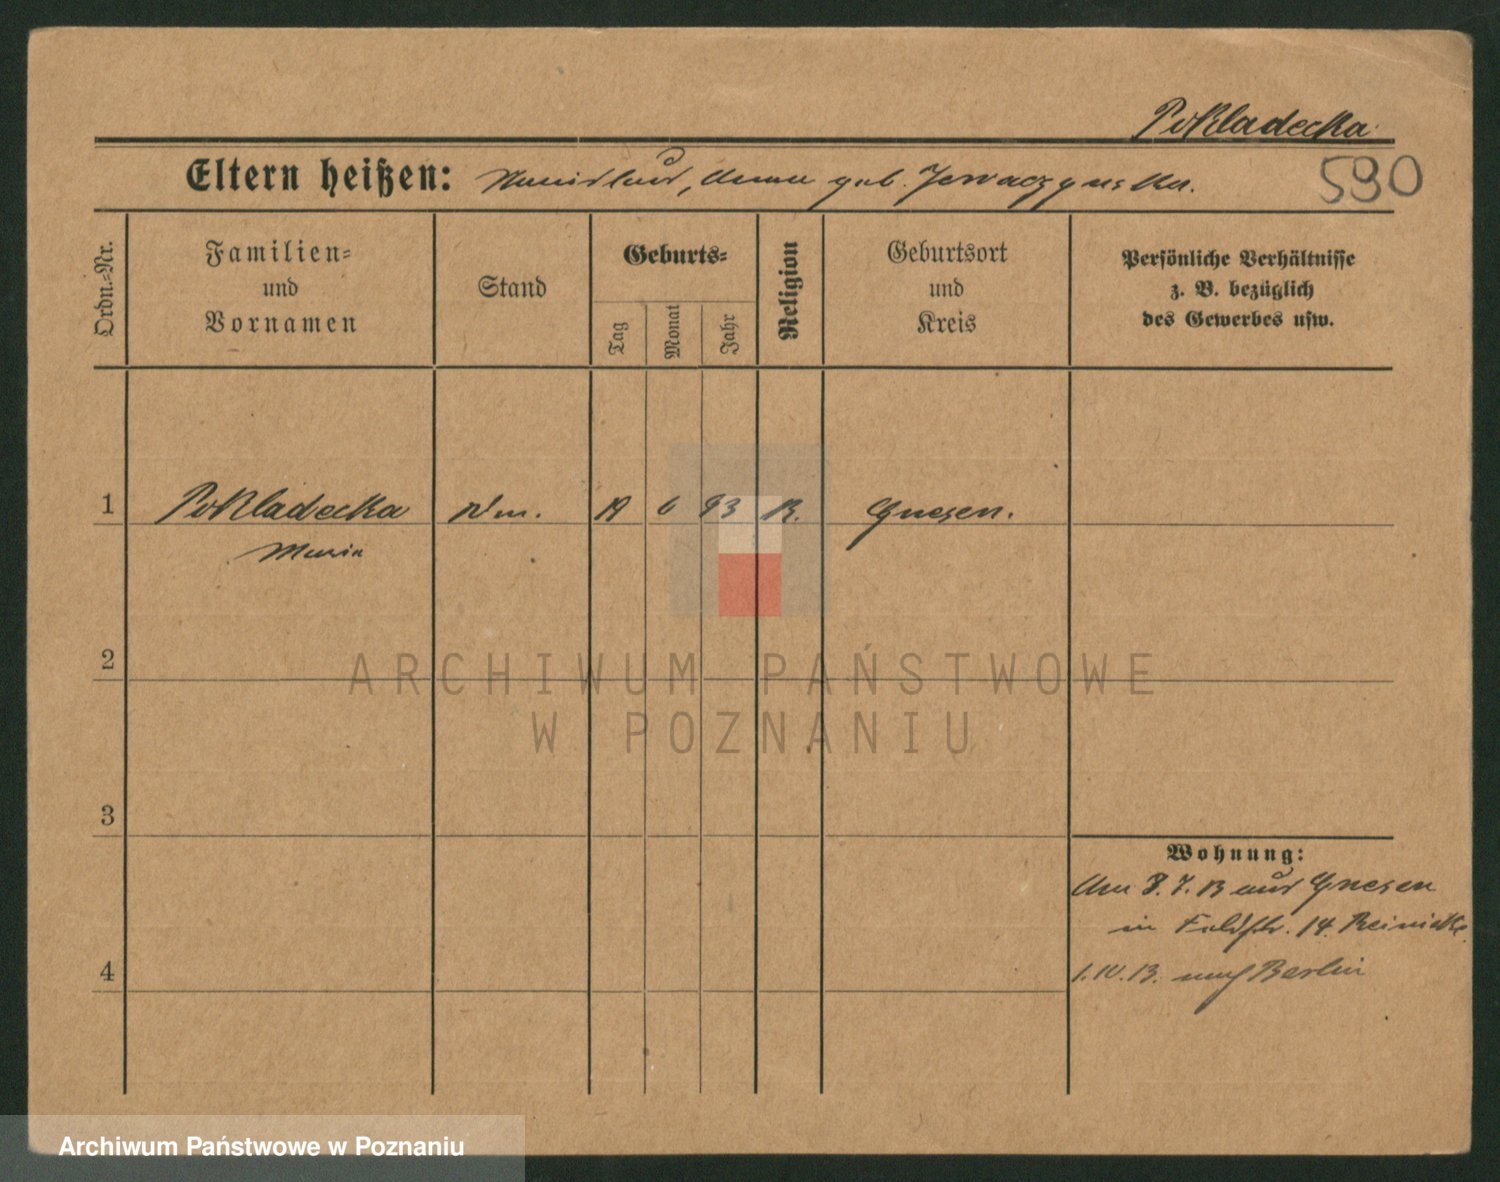 Pokladecka
590
Eltern heißen: Stanislaus, Anna geb.
Ordn.-Nr.
Familien-
und
Vornamen
Stand
Geburts-
Tag
Monat
Jahr
Religion
Geburtsort
und
Kreis
Persönliche Verhältnisse
z. B. bezüglich
des Gewerbes usw.
1 Pokladecka 6 93 K. Gnesen.
Maria
2
3
4
Wohnung:
Am 8.7.13 aus Gnesen
in Feldstr. 14. Reinicke
1.10.13. nach Berlin
ARCHIWUM PAŃSTWOWE
W POZNANIU
Archiwum Państwowe w Poznaniu